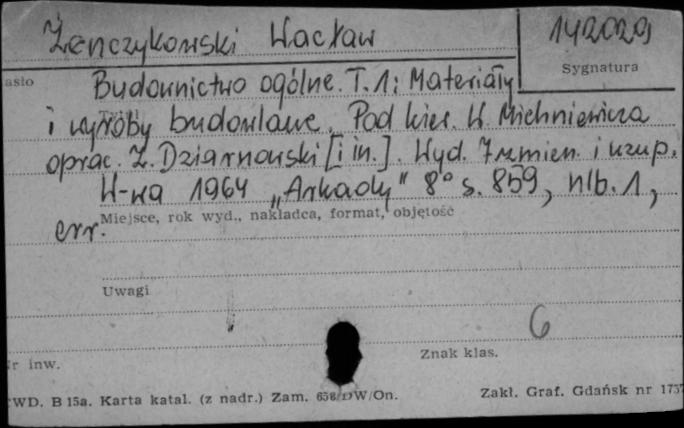 Żenczykowski Wacław
142029
Sygnatura
asło
Budownictwo ogólne. T. 1: Materiały
i wyroby budowlane. Pod kier. W. Michniewicza
oprac. Z. Dziarnowski [i in.]. Wyd. 7 zmien. i uzup.
W-wa 1964 „Arkady" 8° s. 859, nlb. 1,
Miejsce, rok wyd., nakładca, format, objętość
err.
Uwagi
6
r inw.
Znak klas.
WD. B 15a. Karta katal. (z nadr.) Zam. 658/DW/On.
Zakł. Graf. Gdańsk nr 1737